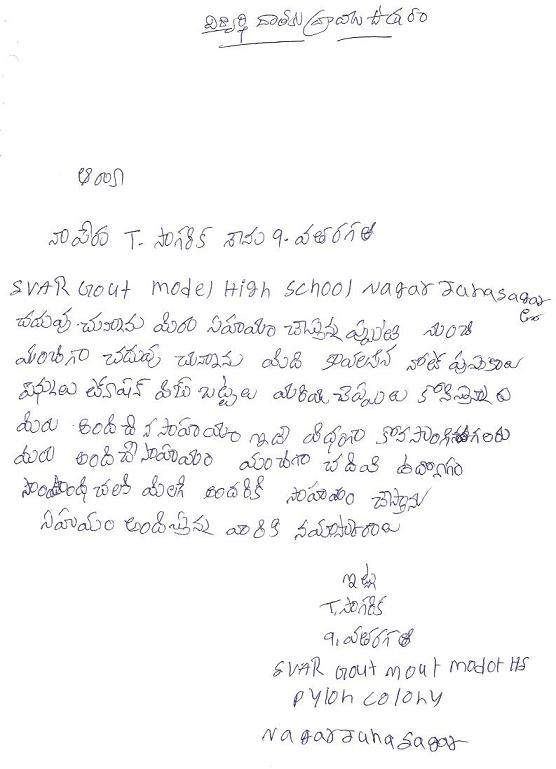 విద్యార్థి దాతకు వ్రాయు ఉత్తరం
ఆర్యా
నా పేరు T. సాగరిక నాను 9. వతరగతి
SVAR Gout model High school Nagar Junasagar లో
చదువు చున్నాను మీరు సహాయం చేస్తున్న ప్పటి నుంచి
మంచిగా చదువు చున్నాను మీరు కావలసిన నోట్ పుస్తకాలు
పెన్నులు టిఫిన్ బట్టలు మరియు చెప్పులు కోనిస్తున్నారు
మీరు అందించిన సహాయం ఇదే విధంగా కోనసాగించగలరు
మీరు అందించే సహాయం మంచిగా చదివి ఉద్యోగం
సంపాదించి అందరికి సహాయం చేస్తాను
సహాయం అందిస్తున్న వారికి నమస్కారాలు
ఇట్లు
T. సాగరిక
9. వతరగతి
SVAR Gout mout modot HS
pylon colony
Nagar Junasagar